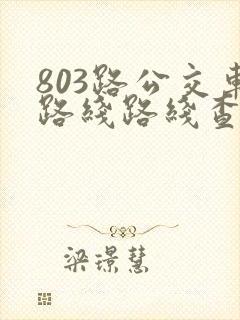 803路公交車
路綫路綫查
梁璟慧